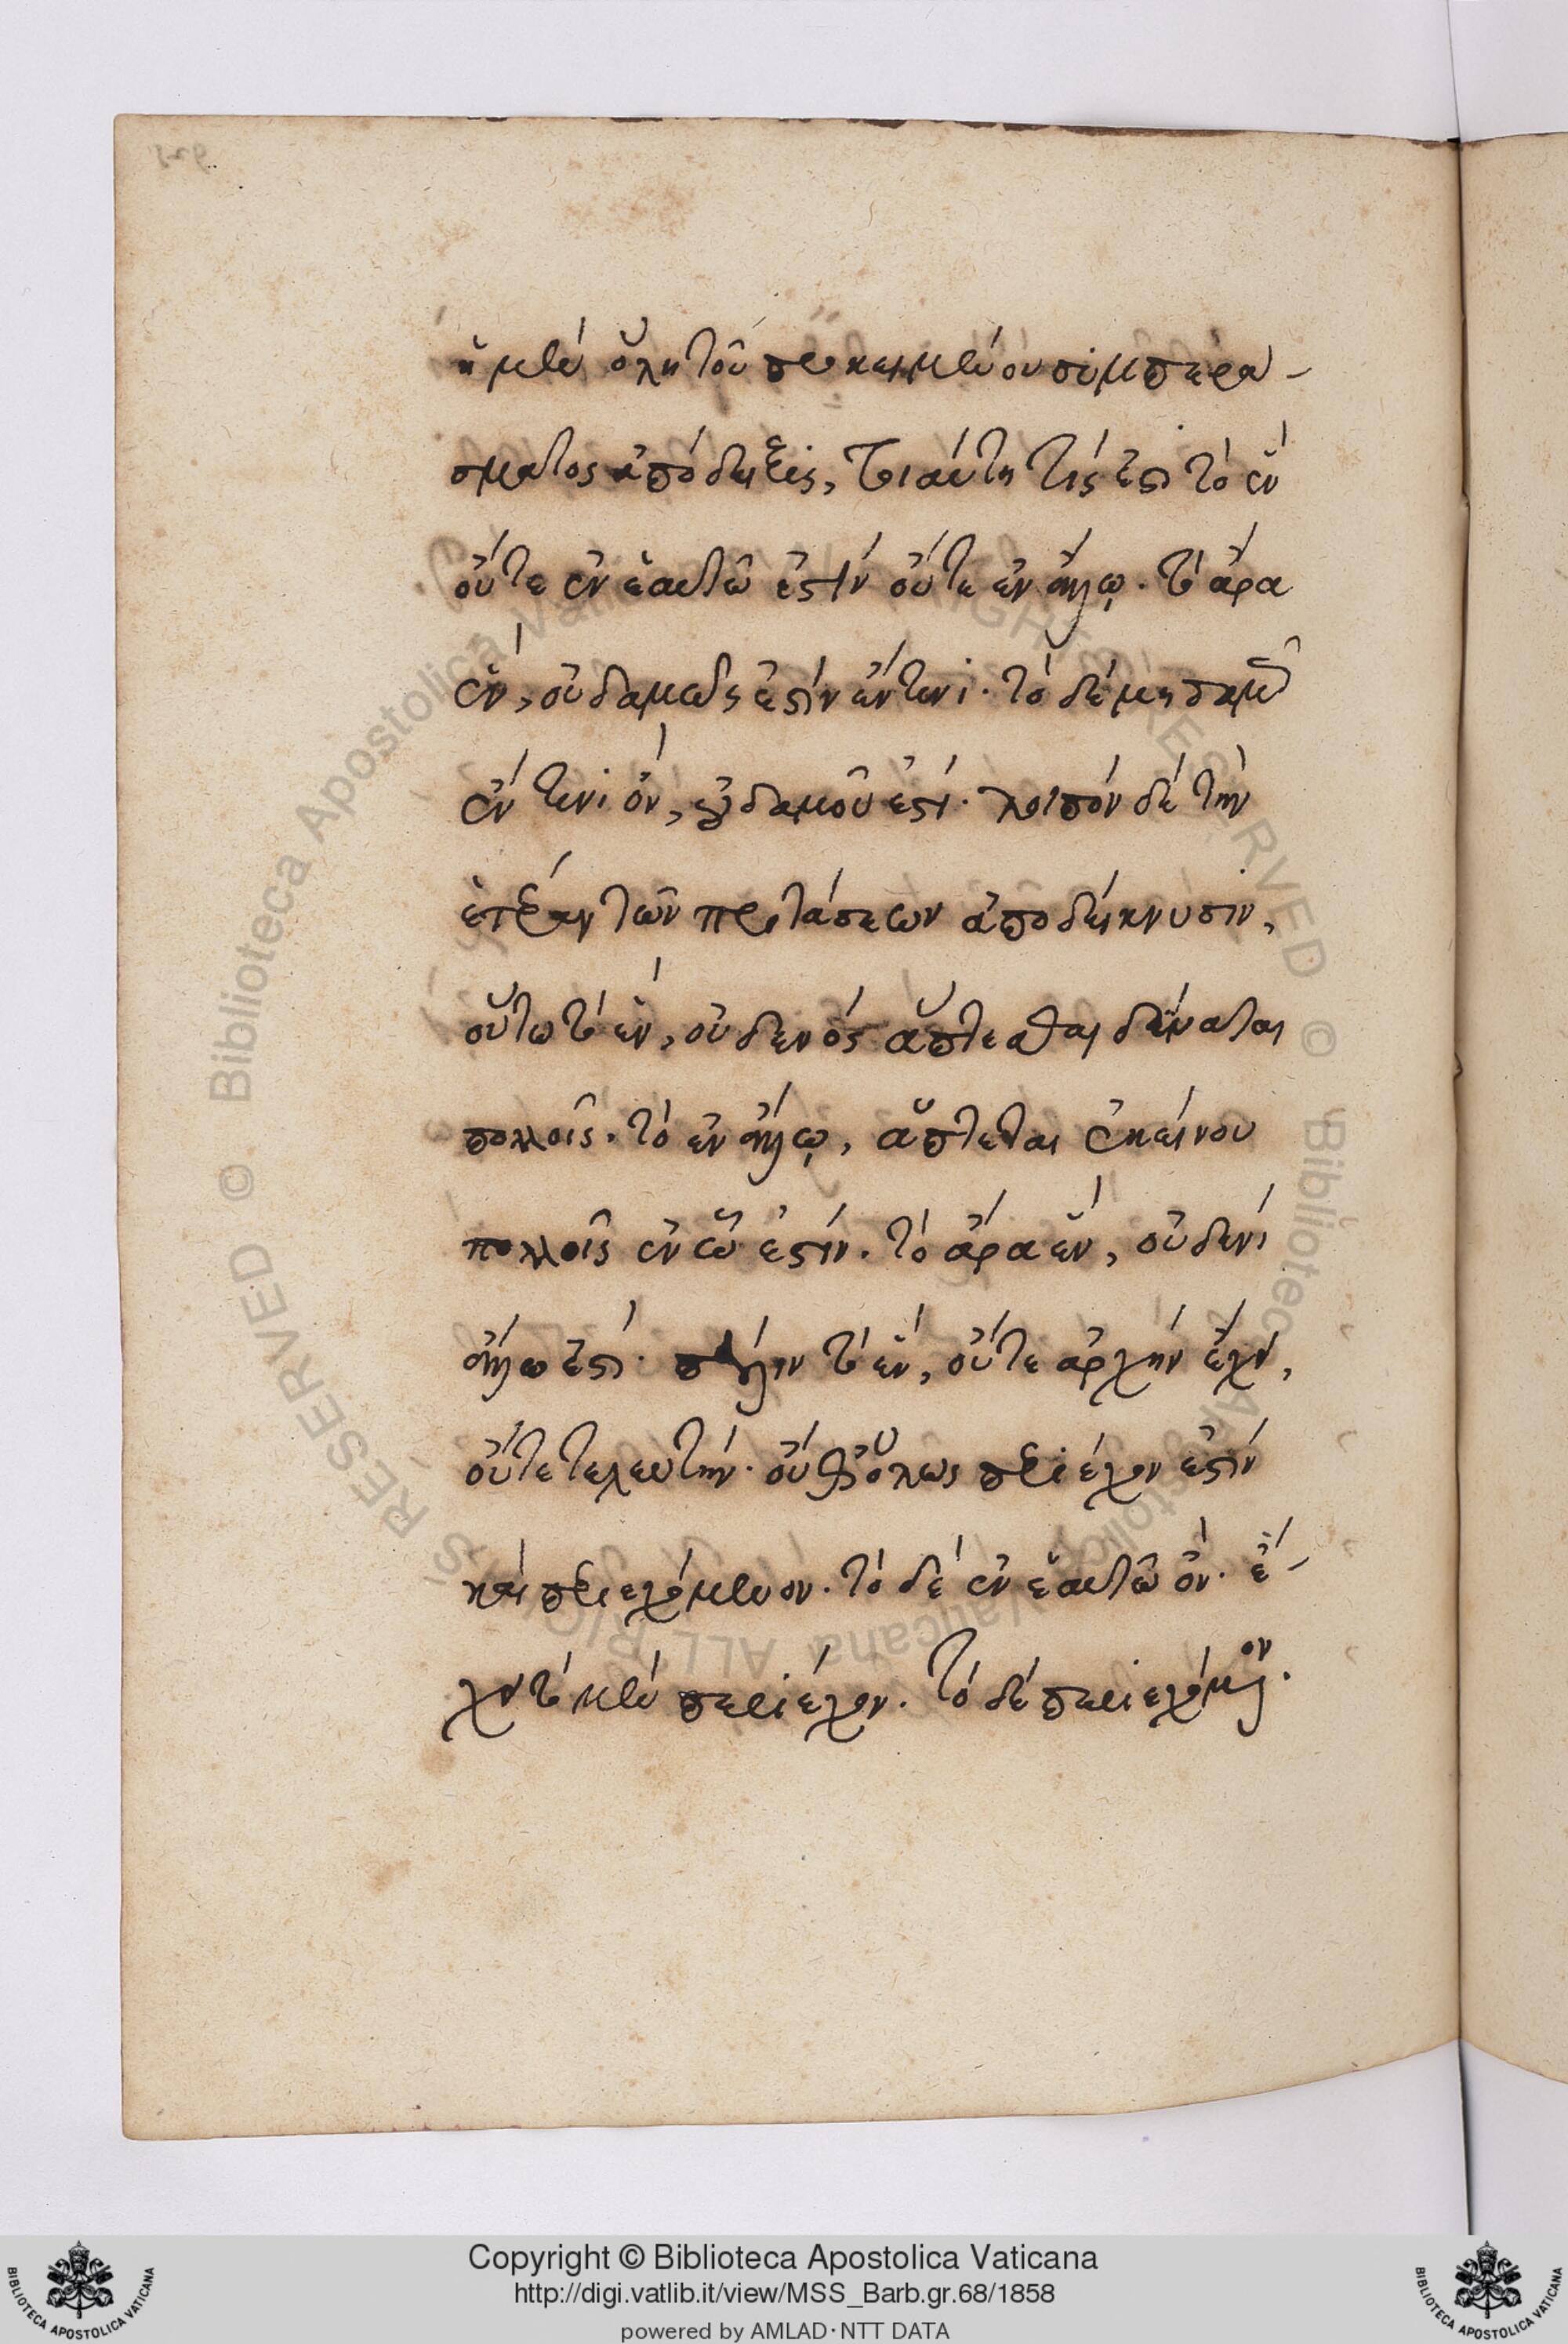 ἡ μὲν ὅλη τοῦ προκειμένου συμπερα-
σματος ἀπόδειξις, τοιαύτη τίς ἐστι τὸ ἓν
οὔτε ἐν ἑαυτῶ ἐστὶν οὔτε ἐν ἄλλῳ. τὸ ἄρα
ἕν, οὐδαμῶς ἐστὶν ἔν τινι. τὸ δὲ μηδαμῶς
ἔν τινι ὄν, οὐδαμοῦ ἐστί. λοιπὸν δὲ τὴν
ἑτέραν τῶν προτάσεων ἀποδείκνυσιν,
οὕτω τὸ ἕν, οὐδενὸς ἅπτεσθαι δύναται
πολλοῖς. τὸ ἐν ἄλλῳ, ἅπτεται ἐκείνου
πολλοῖς ἐν ὧ ἐστίν. τὸ ἄρα ἕν, οὐδενὶ
ἄλλω ἐστί. πάλιν τὸ ἕν, οὔτε ἀρχὴν ἔχον,
οὔτε τελευτήν. οὔθ' ὅλως περιέχον ἐστὶν
καὶ περιεχόμενον. τὸ δὲ ἐν ἑαυτῶ ὄν. ἔ-
χον τὸ μὲν περιέχον. τὸ δὲ περιεχόμενον.
Copyright © Biblioteca Apostolica Vaticana
http://digi.vatlib.it/view/MSS_Barb.gr.68/1858
powered by AMLAD·NTT DATA